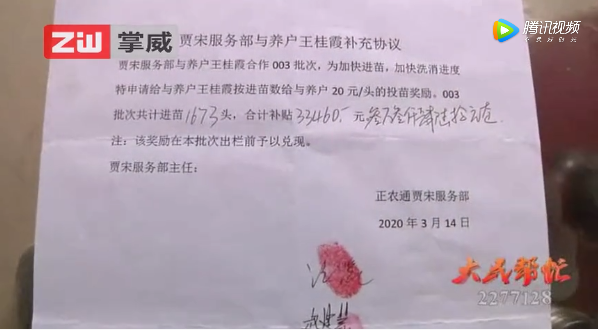 ZW 掌威
腾讯视频
贾宋服务部与养户王桂霞补充协议
贾宋服务部与养户王桂霞合作 003 批次，为加快进苗，加快洗消进度
特申请给与养户王桂霞按进苗数给与养户 20 元/头的投苗奖励。003
批次共计进苗1673头，合计补贴33460.-元叁万叁仟肆佰陆拾元整
注：该奖励在本批次出栏前予以兑现。
贾宋服务部主任：
正农通贾宋服务部
2020 年 3 月 14 日
大民帮忙
2277128